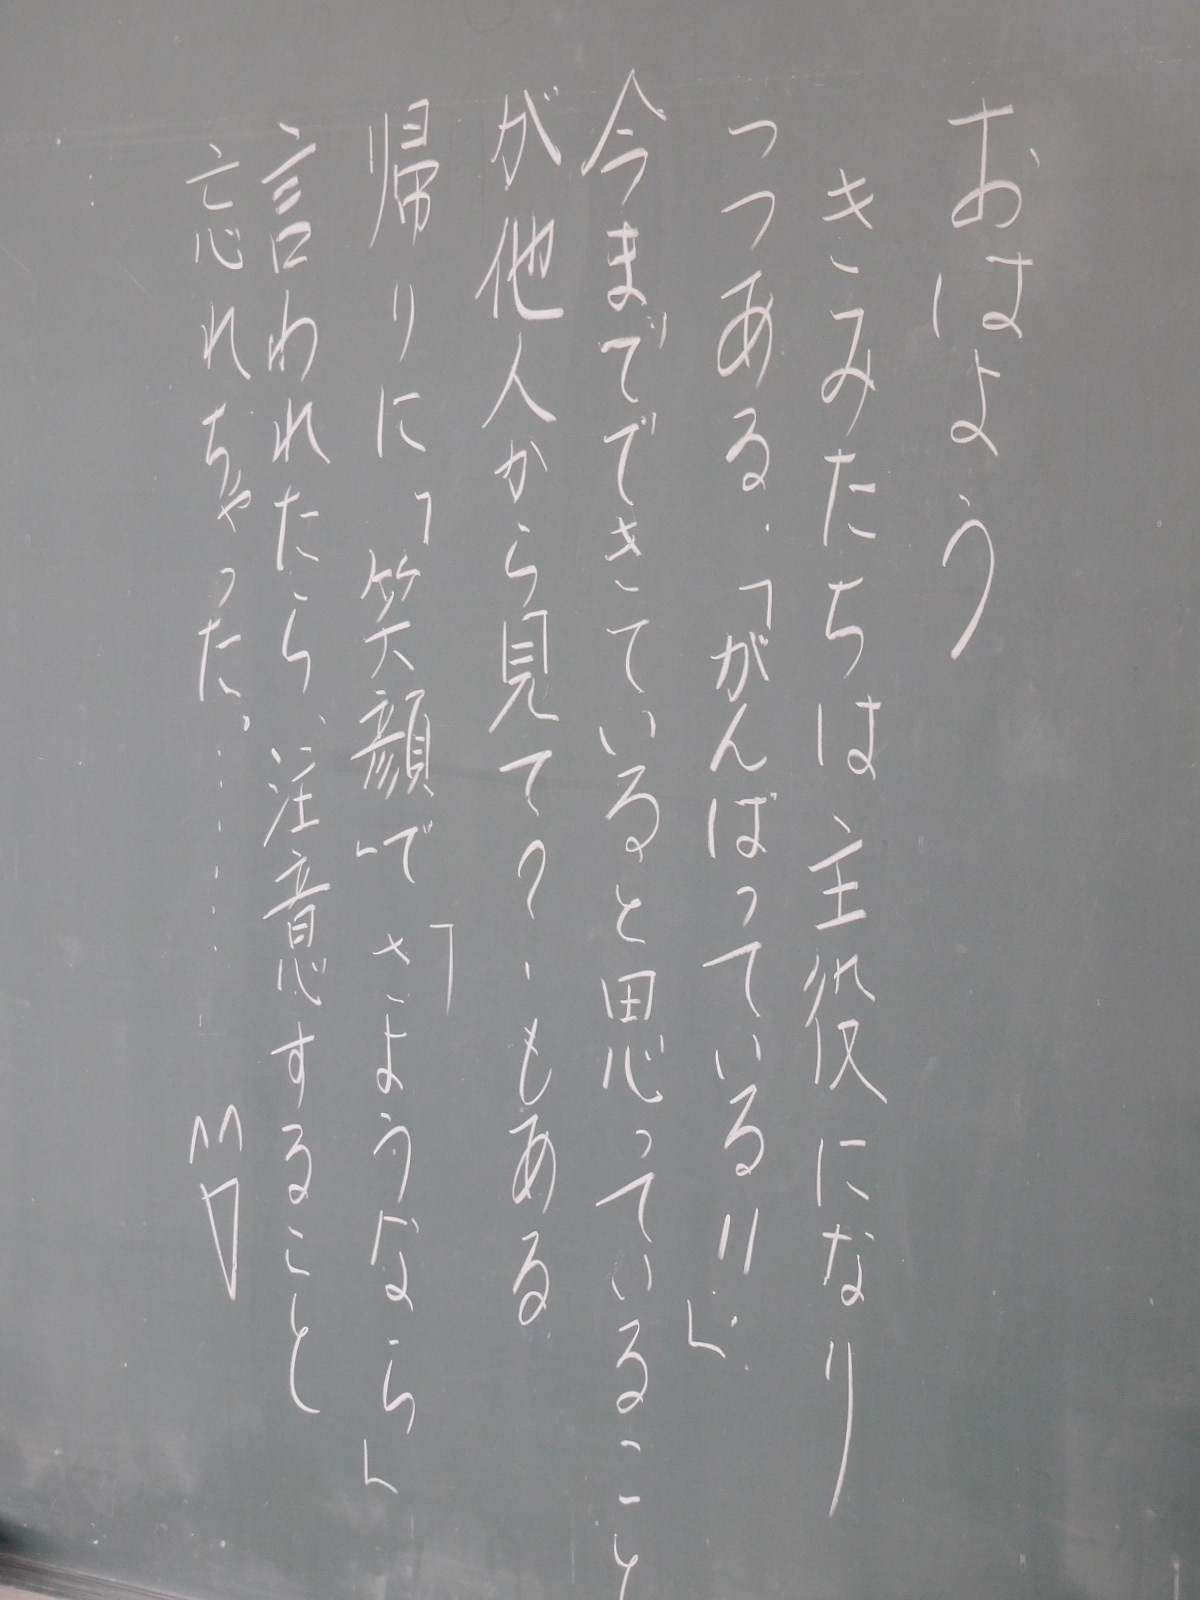 おはよう
きみたちは主役になり
つつある.「がんばっている!!」
今までできていると思っていること
が他人から見て?.もある
帰りに「笑顔」で「さようなら」
言われたら、注意すること
忘れちゃった、……